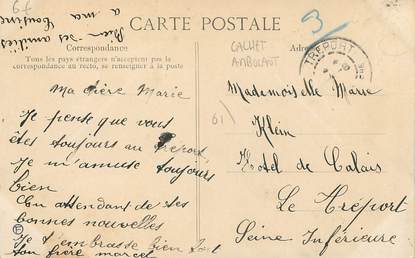 CARTE POSTALE
Correspondance
Tous les pays étrangers n'acceptent pas la
correspondance au recto, se renseigner à la poste
Bien des amitiés
à ma cousine
3
CACHET
AMBULANT
TREPORT
Ma chère Marie
Je pense que vous
êtes toujours au Tréport
Je m'amuse toujours
bien
En attendant de tes
bonnes nouvelles
Je t'embrasse bien fort
ton frère marcel
Mademoiselle Marie
Klein
Hotel de Calais
Le Tréport
Seine Inférieure
61